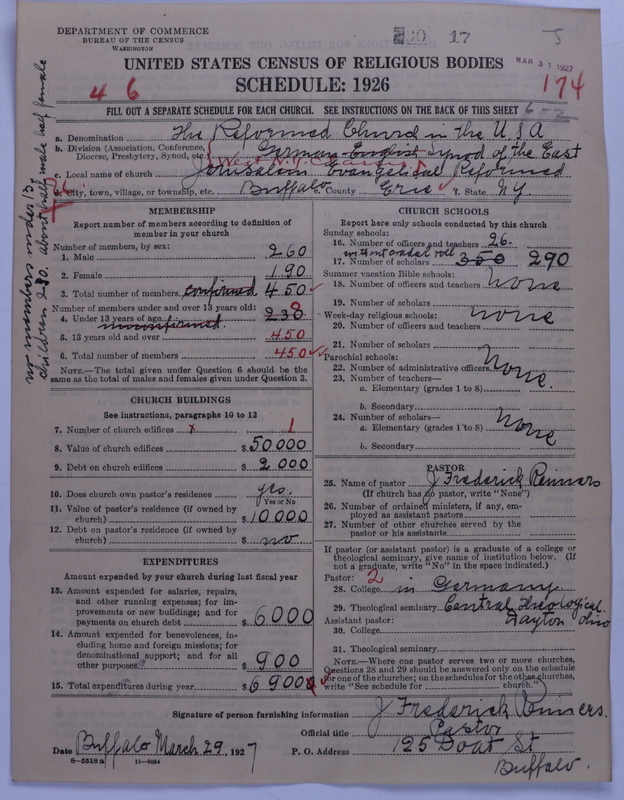 DEPARTMENT OF COMMERCE
BUREAU OF THE CENSUS
WASHINGTON
30 17
MAR 31 1927
UNITED STATES CENSUS OF RELIGIOUS BODIES
SCHEDULE: 1926
4 6
174
FILL OUT A SEPARATE SCHEDULE FOR EACH CHURCH. SEE INSTRUCTIONS ON THE BACK OF THIS SHEET
6-2
a. Denomination The Reformed Church in the U S A
b. Division (Association, Conference, Diocese, Presbytery, Synod, etc.) German English Synod of the East
West N.Y. Classis
c. Local name of church Jerusalem Evangelical Reformed
d. City, town, village, or township, etc. Buffalo e. County Erie f. State N.Y.
no members under 13
children 230. about half male half female
MEMBERSHIP
Report number of members according to definition of
member in your church
Number of members, by sex:
1. Male 260
2. Female 190
3. Total number of members confirmed 450
Number of members under and over 13 years old:
4. Under 13 years of age 230
unconfirmed
5. 13 years old and over 450
6. Total number of members 450
NOTE.—The total given under Question 6 should be the
same as the total of males and females given under Question 3.
CHURCH BUILDINGS
See instructions, paragraphs 10 to 12
7. Number of church edifices x 1
8. Value of church edifices $50000
9. Debt on church edifices $2000
10. Does church own pastor's residence yes.
Yes or No
11. Value of pastor's residence (if owned by
church) $10000
12. Debt on pastor's residence (if owned by
church) $ no
EXPENDITURES
Amount expended by your church during last fiscal year
13. Amount expended for salaries, repairs,
and other running expenses; for im-
provements or new buildings; and for
payments on church debt $6000
14. Amount expended for benevolences, in-
cluding home and foreign missions; for
denominational support; and for all
other purposes $900
15. Total expenditures during year $6900
CHURCH SCHOOLS
Report here only schools conducted by this church
Sunday schools:
16. Number of officers and teachers 26.
without cradle roll
17. Number of scholars 350 290
Summer vacation Bible schools:
18. Number of officers and teachers none
19. Number of scholars
Week-day religious schools:
20. Number of officers and teachers none
21. Number of scholars
Parochial schools:
22. Number of administrative officers none.
23. Number of teachers—
a. Elementary (grades 1 to 8)
b. Secondary
24. Number of scholars—
a. Elementary (grades 1 to 8) none
b. Secondary
PASTOR
25. Name of pastor J Frederick Reiners
(If church has no pastor, write "None")
26. Number of ordained ministers, if any, em-
ployed as assistant pastors
27. Number of other churches served by the
pastor or his assistants
If pastor (or assistant pastor) is a graduate of a college or
theological seminary, give name of institution below. (If
not a graduate, write "No" in the space indicated.)
Pastor: 2
28. College in Germany
29. Theological seminary Central Theological
Dayton Ohio
Assistant pastor:
30. College
31. Theological seminary
NOTE.—Where one pastor serves two or more churches,
Questions 28 and 29 should be answered only on the schedule
for one of the churches; on the schedules for the other churches,
write "See schedule for church."
Signature of person furnishing information J Frederick Reiners.
Official title Pastor
Date Buffalo March 29, 1927 P. O. Address 125 Doat St
Buffalo.
8—5518 a 11—9064